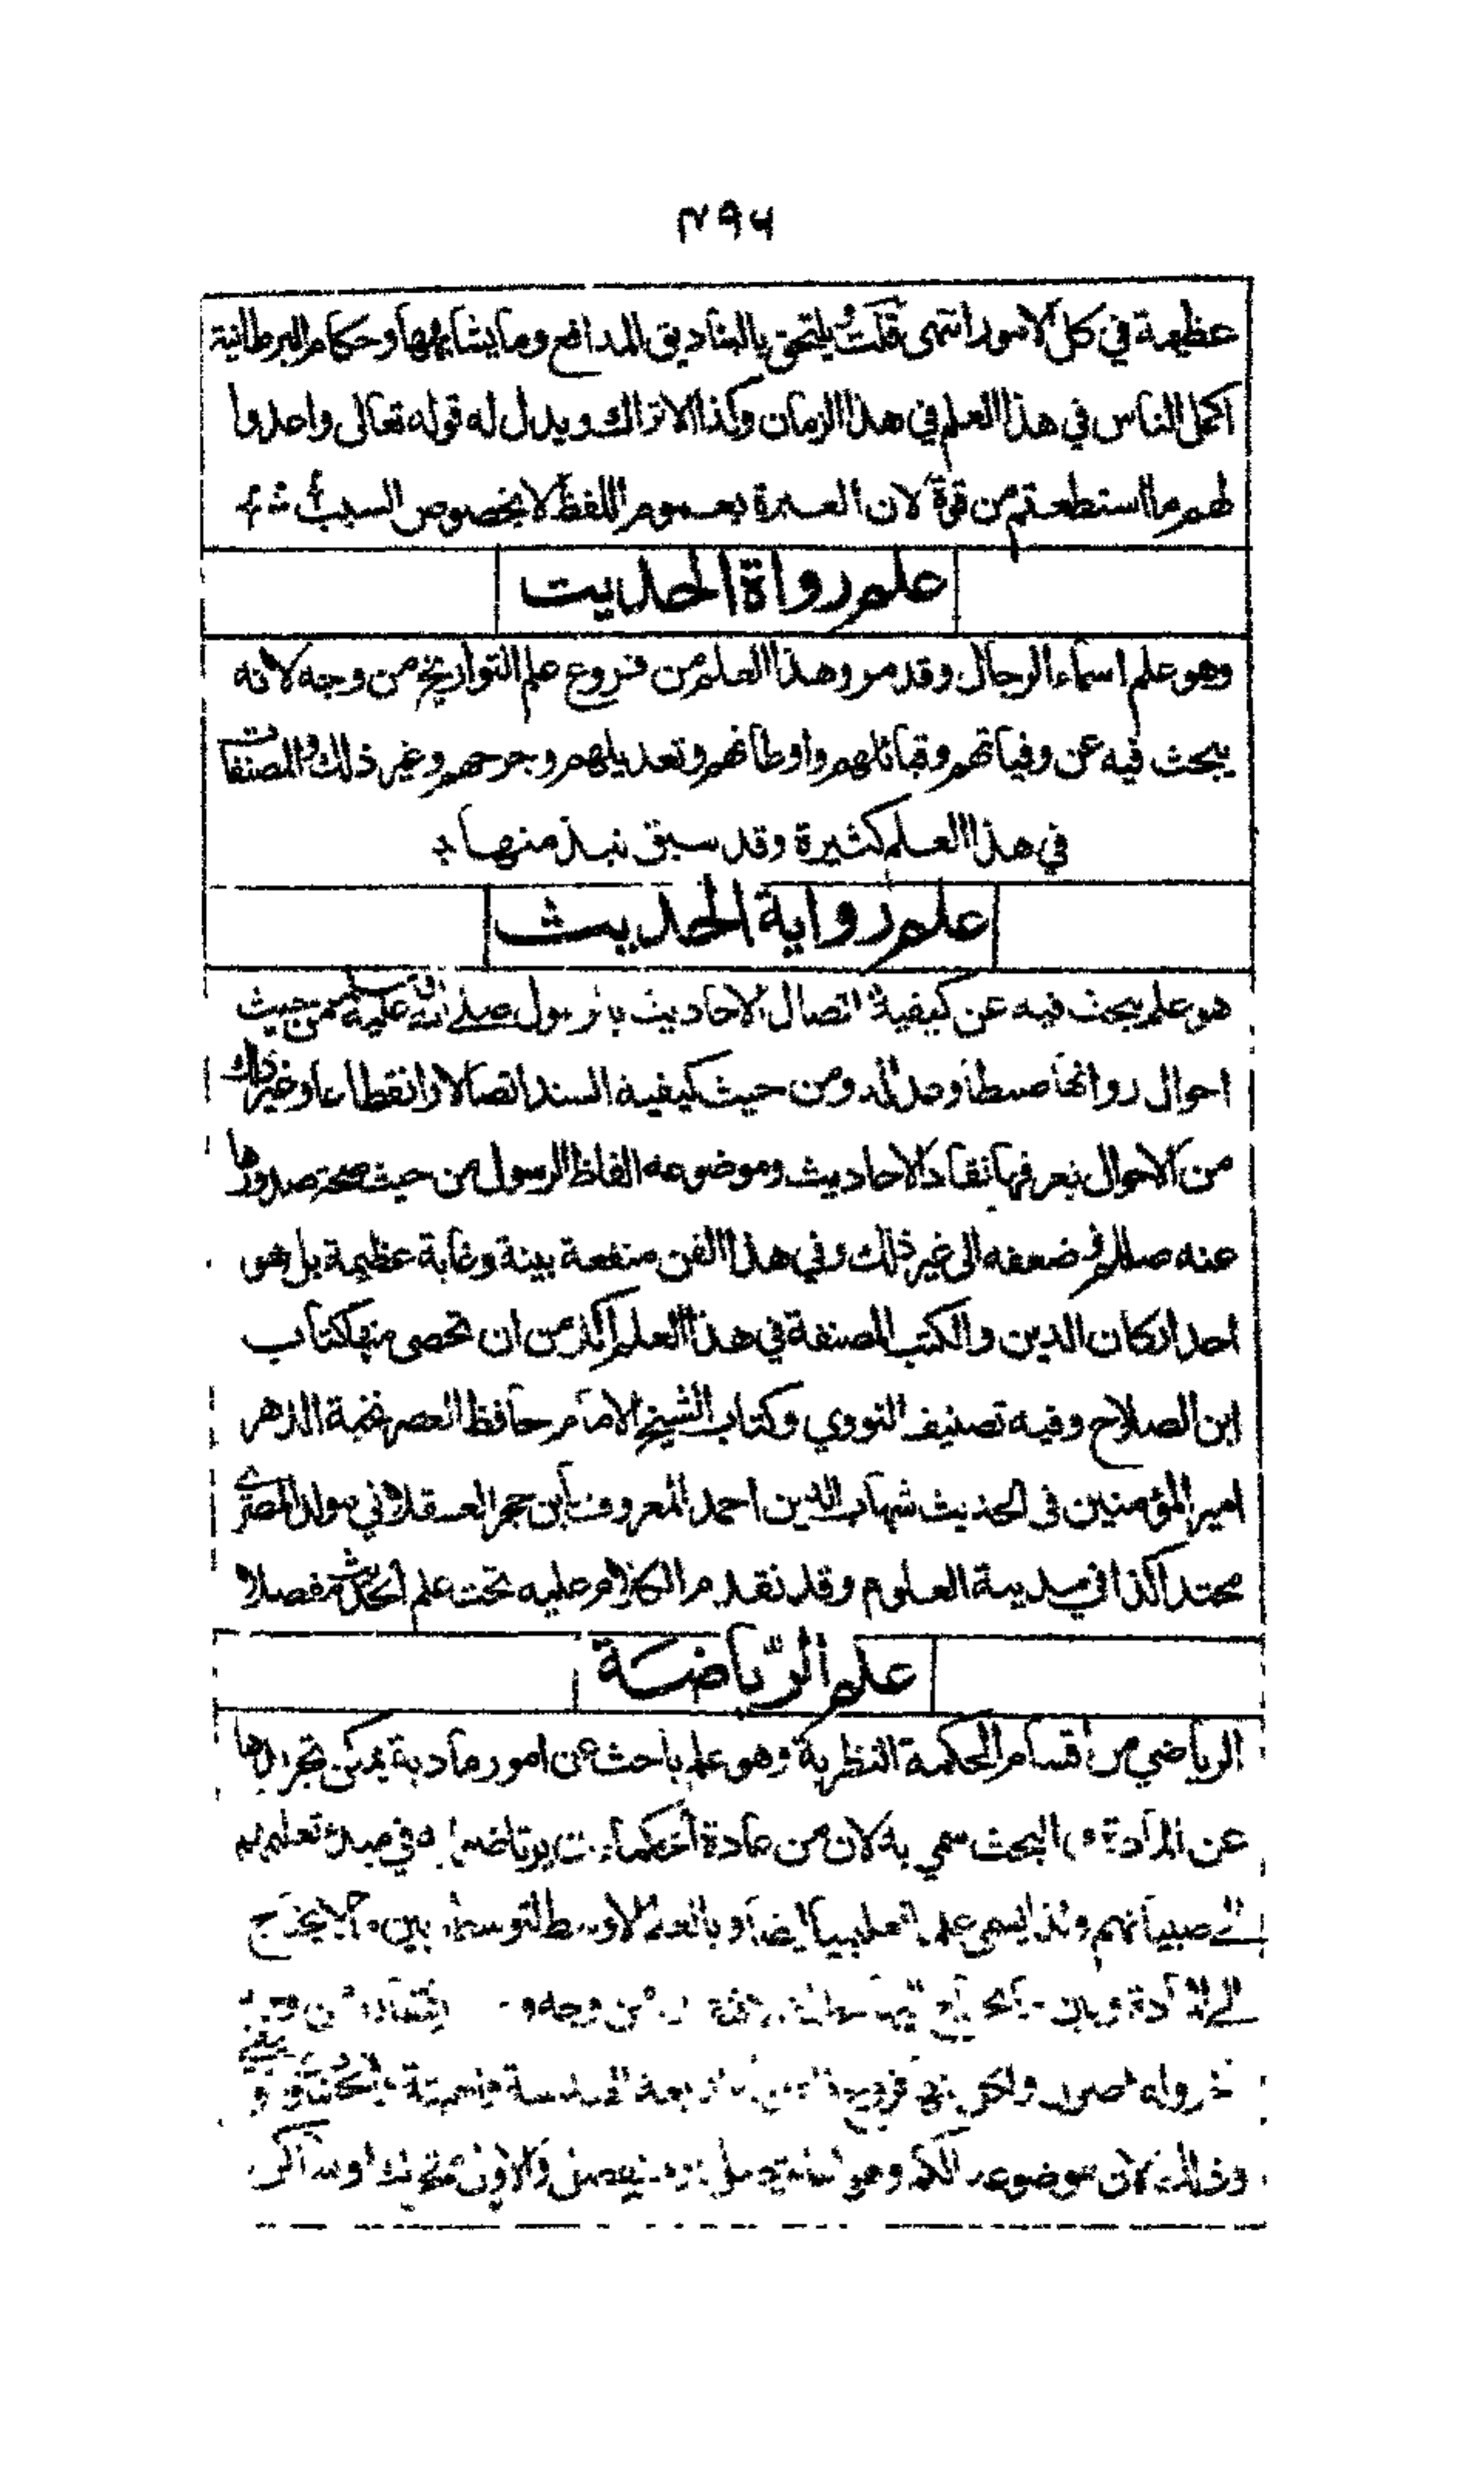 ۴۹۶
عظيمة في كل الامور انتهى قلت يلتحق بالبناديق المدافع وما يشابهها وحكام البرطانية
اكمل الناس في هذا العلم في هذا الزمان وكذا الاتراك ويدل له قوله تعالى واعدوا
لهم ما استطعتم من قوة لان العبرة بعموم اللفظ لا بخصوص السبب
علم رواة الحديث
وهو علم اسماء الرجال وقد مر وهذا العلم من فروع علم التواريخ من وجه لانه
يبحث فيه عن وفياتهم وقبائلهم واوطانهم وتعديلهم وجرحهم وغير ذلك والمصنفات
في هذا العلم كثيرة وقد سبق نبذ منها
علم رواية الحديث
هو علم يبحث فيه عن كيفية اتصال الاحاديث بالرسول صلى الله عليه وسلم من حيث
احوال رواتها ضبطا وعدالة ومن حيث كيفية السند اتصالا وانقطاعا وغير ذلك
من الاحوال يعرفها نقاد الاحاديث وموضوعه الفاظ الرسول من حيث صحة صدورها
عنه صللم وضعفه الى غير ذلك وفي هذا الفن منفعة بينة وغاية عظيمة بل هو
احد اركان الدين والكتب المصنفة في هذا العلم اكثر من ان تحصى منها كتاب
ابن الصلاح وفيه تصنيف النووي وكتاب الشيخ الامام حافظ العصر نخبة الدهر
امير المؤمنين في الحديث شهاب الدين احمد المعروف بابن حجر العسقلاني مولدا المصري
محتدا كذا في مدينة العلوم وقد تقدم الكلام عليه تحت علم الحديث مفصلا
علم الرياضة
الرياضي من اقسام الحكمة النظرية وهو علم باحث عن امور مادية يمكن تجريدها
عن المادة في البحث سمي به لان من عادة الحكماء ان يرتاضوا به في مبدء تعليمهم
الى صبيانهم ولذا يسمى علما تعليميا ايضا وبالعلم الاوسط لتوسطه بين ما لا يحتاج
الى المادة وبين ما يحتاج من وجه
وله اصول ولكل منها فروع اربعة الهندسة
وذلك لان موضوعه الكم وهو اما متصل او منفصل والاول متحرك او ساكن